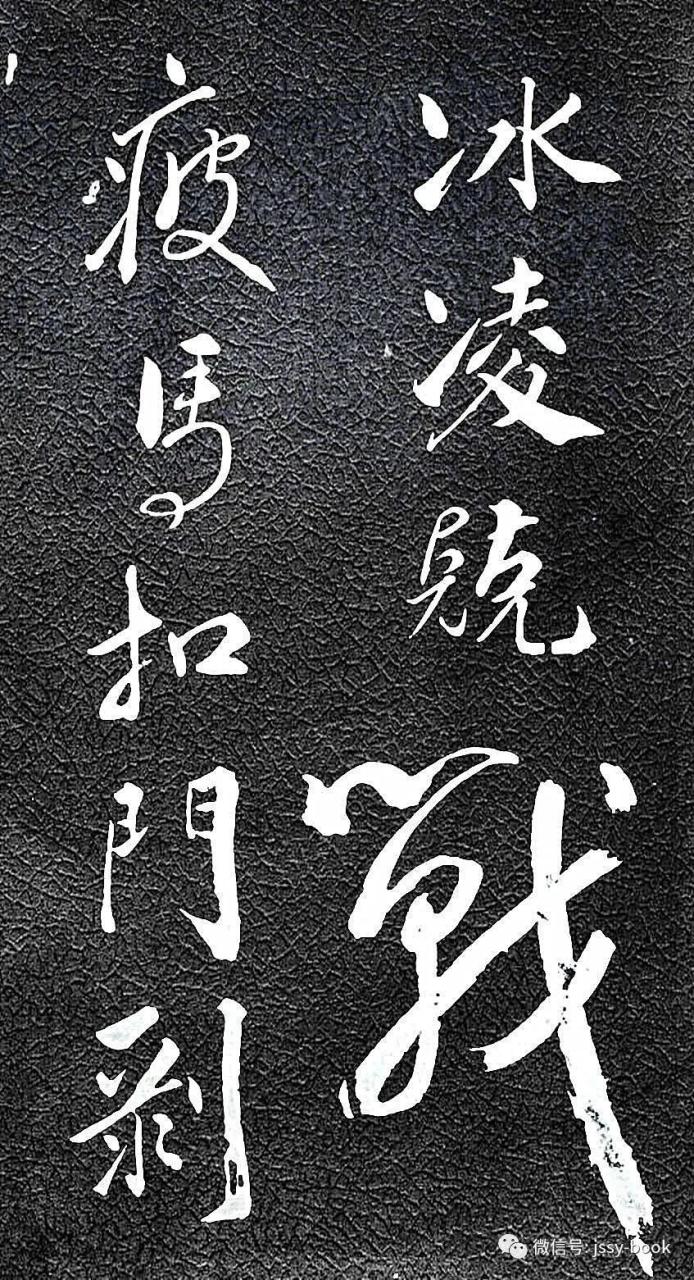 冰凌兢戰
疲馬扣門剥
微信号: jssy-book